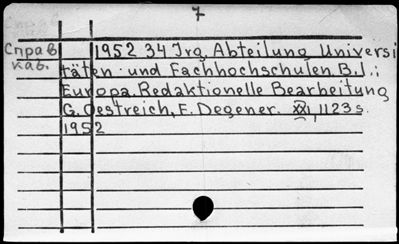 7
Справ 1952 34 Jrg. Abteilung Universi
каб. täten und Fachhochschulen. B. I.:
Europa. Redaktionelle Bearbeitung
G. Oestreich, E. Degener. XXI, 1123 s.
1952